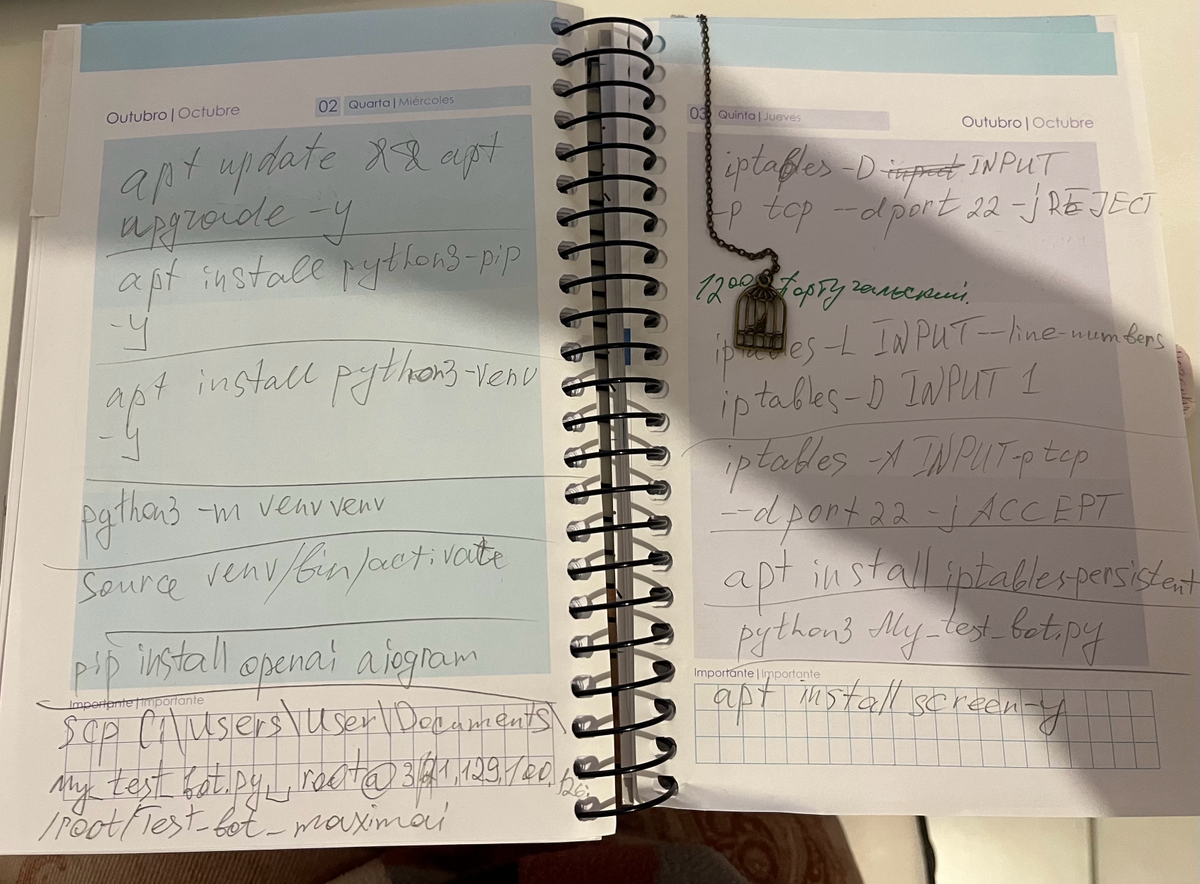 Outubro | Octubre
02 Quarta | Miércoles
apt update && apt
upgroade -y
apt install python3-pip
-y
apt install python3-venv
-y
python3 -m venv venv
source venv/bin/activate
pip install openai aiogram
Importante | Importante
scp C:\Users\User\Documents\
My_test_bot.py root@
/root/Test_bot_maximai
03 Quinta | Jueves
Outubro | Octubre
iptables -D input INPUT
-p tcp --dport 22 -j REJECT
12⁰⁰ Португальский.
iptables -L INPUT --line-numbers
iptables -D INPUT 1
iptables -A INPUT -p tcp
--dport 22 -j ACCEPT
apt install iptables-persistent
python3 My_test_bot.py
Importante | Importante
apt install screen -y